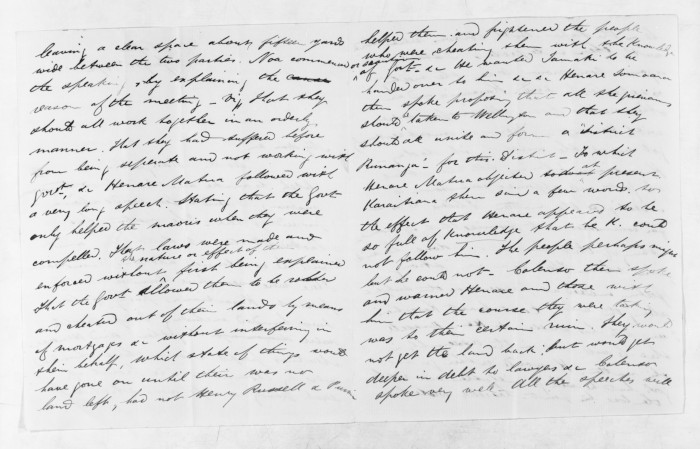 leaving a clear space about fifteen yards
wide between the two parties. Noa commenced
the speaking, by explaining the
reason of the meeting - viz, that they
should all work together in an orderly
manner. That they had suffered before
from being seperate and not working with
Govt. &c Henare Matua followed with
a very long speech. Stating that the Govt
only helped the maoris when they were
compelled. That laws were made and
enforced without the nature or effect of first being explained
That the Govt allowed them to be robbed
and cheated out of their lands by means
of mortgages &c without interfering in
their behalf, which state of things would
have gone on until their was no
land left, had not Henry Russell &
helped them and frightened the people
who were cheating them with the knowledge
of Govt - &c He wanted Tamaki to be
handed over to him &c &c Henare Tomoana
then spoke proposing that all the grievances
should be taken to Wellington and that they
should all unite and form a "District
Runanga" for this District - To which
Henare Matua objected at present
Karaitiana then said a few words, to
the effect that Henare appeared to be
so full of knowledge that he K. could
not follow him. The people perhaps might
but he could not - Colenso then spoke
and warned Henare and those with
him that the course they were taking
was to their certain ruin. They would
not get the land back, but would get
deeper in debt to lawyers &c Colenso
spoke very well. All the speeches will